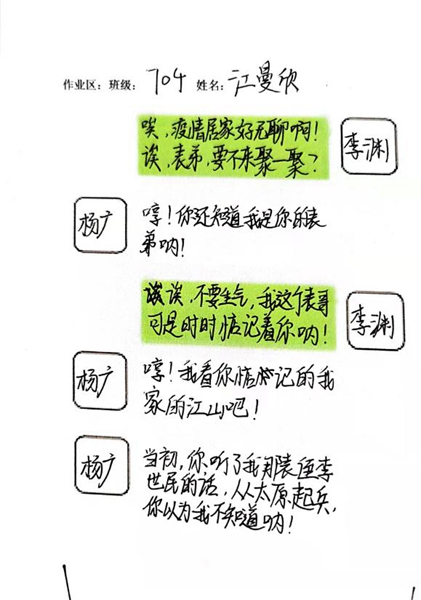 作业区：班级：704 姓名：江曼欣
唉，疫情居家好无聊啊！
诶，表弟，要不来聚一聚？
李渊
杨广
哼！你还知道我是你的表
弟呐！
诶诶，不要生气，我这个表哥
可是时时惦记着你呐！
李渊
杨广
哼！我看你惦记的我
家的江山吧！
杨广
当初，你听了我那表侄李
世民的话，从太原起兵，
你以为我不知道呐！